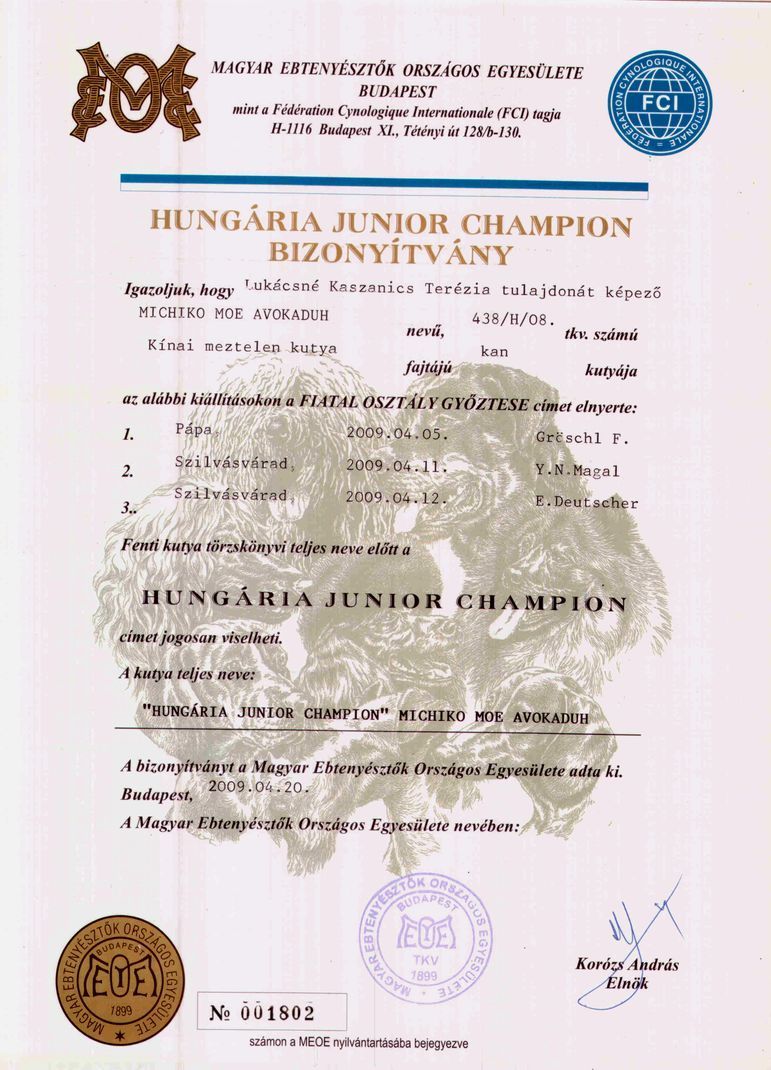 MAGYAR EBTENYÉSZTŐK ORSZÁGOS EGYESÜLETE
BUDAPEST
mint a Fédération Cynologique Internationale (FCI) tagja
H-1116 Budapest XI., Tétényi út 128/b-130.
FEDERATION CYNOLOGIQUE INTERNATIONALE
FCI
HUNGÁRIA JUNIOR CHAMPION
BIZONYÍTVÁNY
Igazoljuk, hogy Lukácsné Kaszanics Terézia tulajdonát képező
MICHIKO MOE AVOKADUH nevű, 438/H/08. tkv. számú
Kínai meztelen kutya fajtájú kan kutyája
az alábbi kiállításokon a FIATAL OSZTÁLY GYŐZTESE címet elnyerte:
1. Pápa, 2009.04.05. Gröschl F.
2. Szilvásvárad, 2009.04.11. Y.N.Magal
3.. Szilvásvárad, 2009.04.12. E.Deutscher
Fenti kutya törzskönyvi teljes neve előtt a
HUNGÁRIA JUNIOR CHAMPION
címet jogosan viselheti.
A kutya teljes neve:
"HUNGÁRIA JUNIOR CHAMPION" MICHIKO MOE AVOKADUH
A bizonyítványt a Magyar Ebtenyésztők Országos Egyesülete adta ki.
Budapest, 2009.04.20.
A Magyar Ebtenyésztők Országos Egyesülete nevében:
MAGYAR EBTENYÉSZTŐK ORSZÁGOS EGYESÜLETE
BUDAPEST
MEOE
TKV
1899
MAGYAR EBTENYÉSZTŐK ORSZÁGOS EGYESÜLETE
BUDAPEST
MEOE
1899
Korózs András
Elnök
№ 001802
számon a MEOE nyilvántartásába bejegyezve